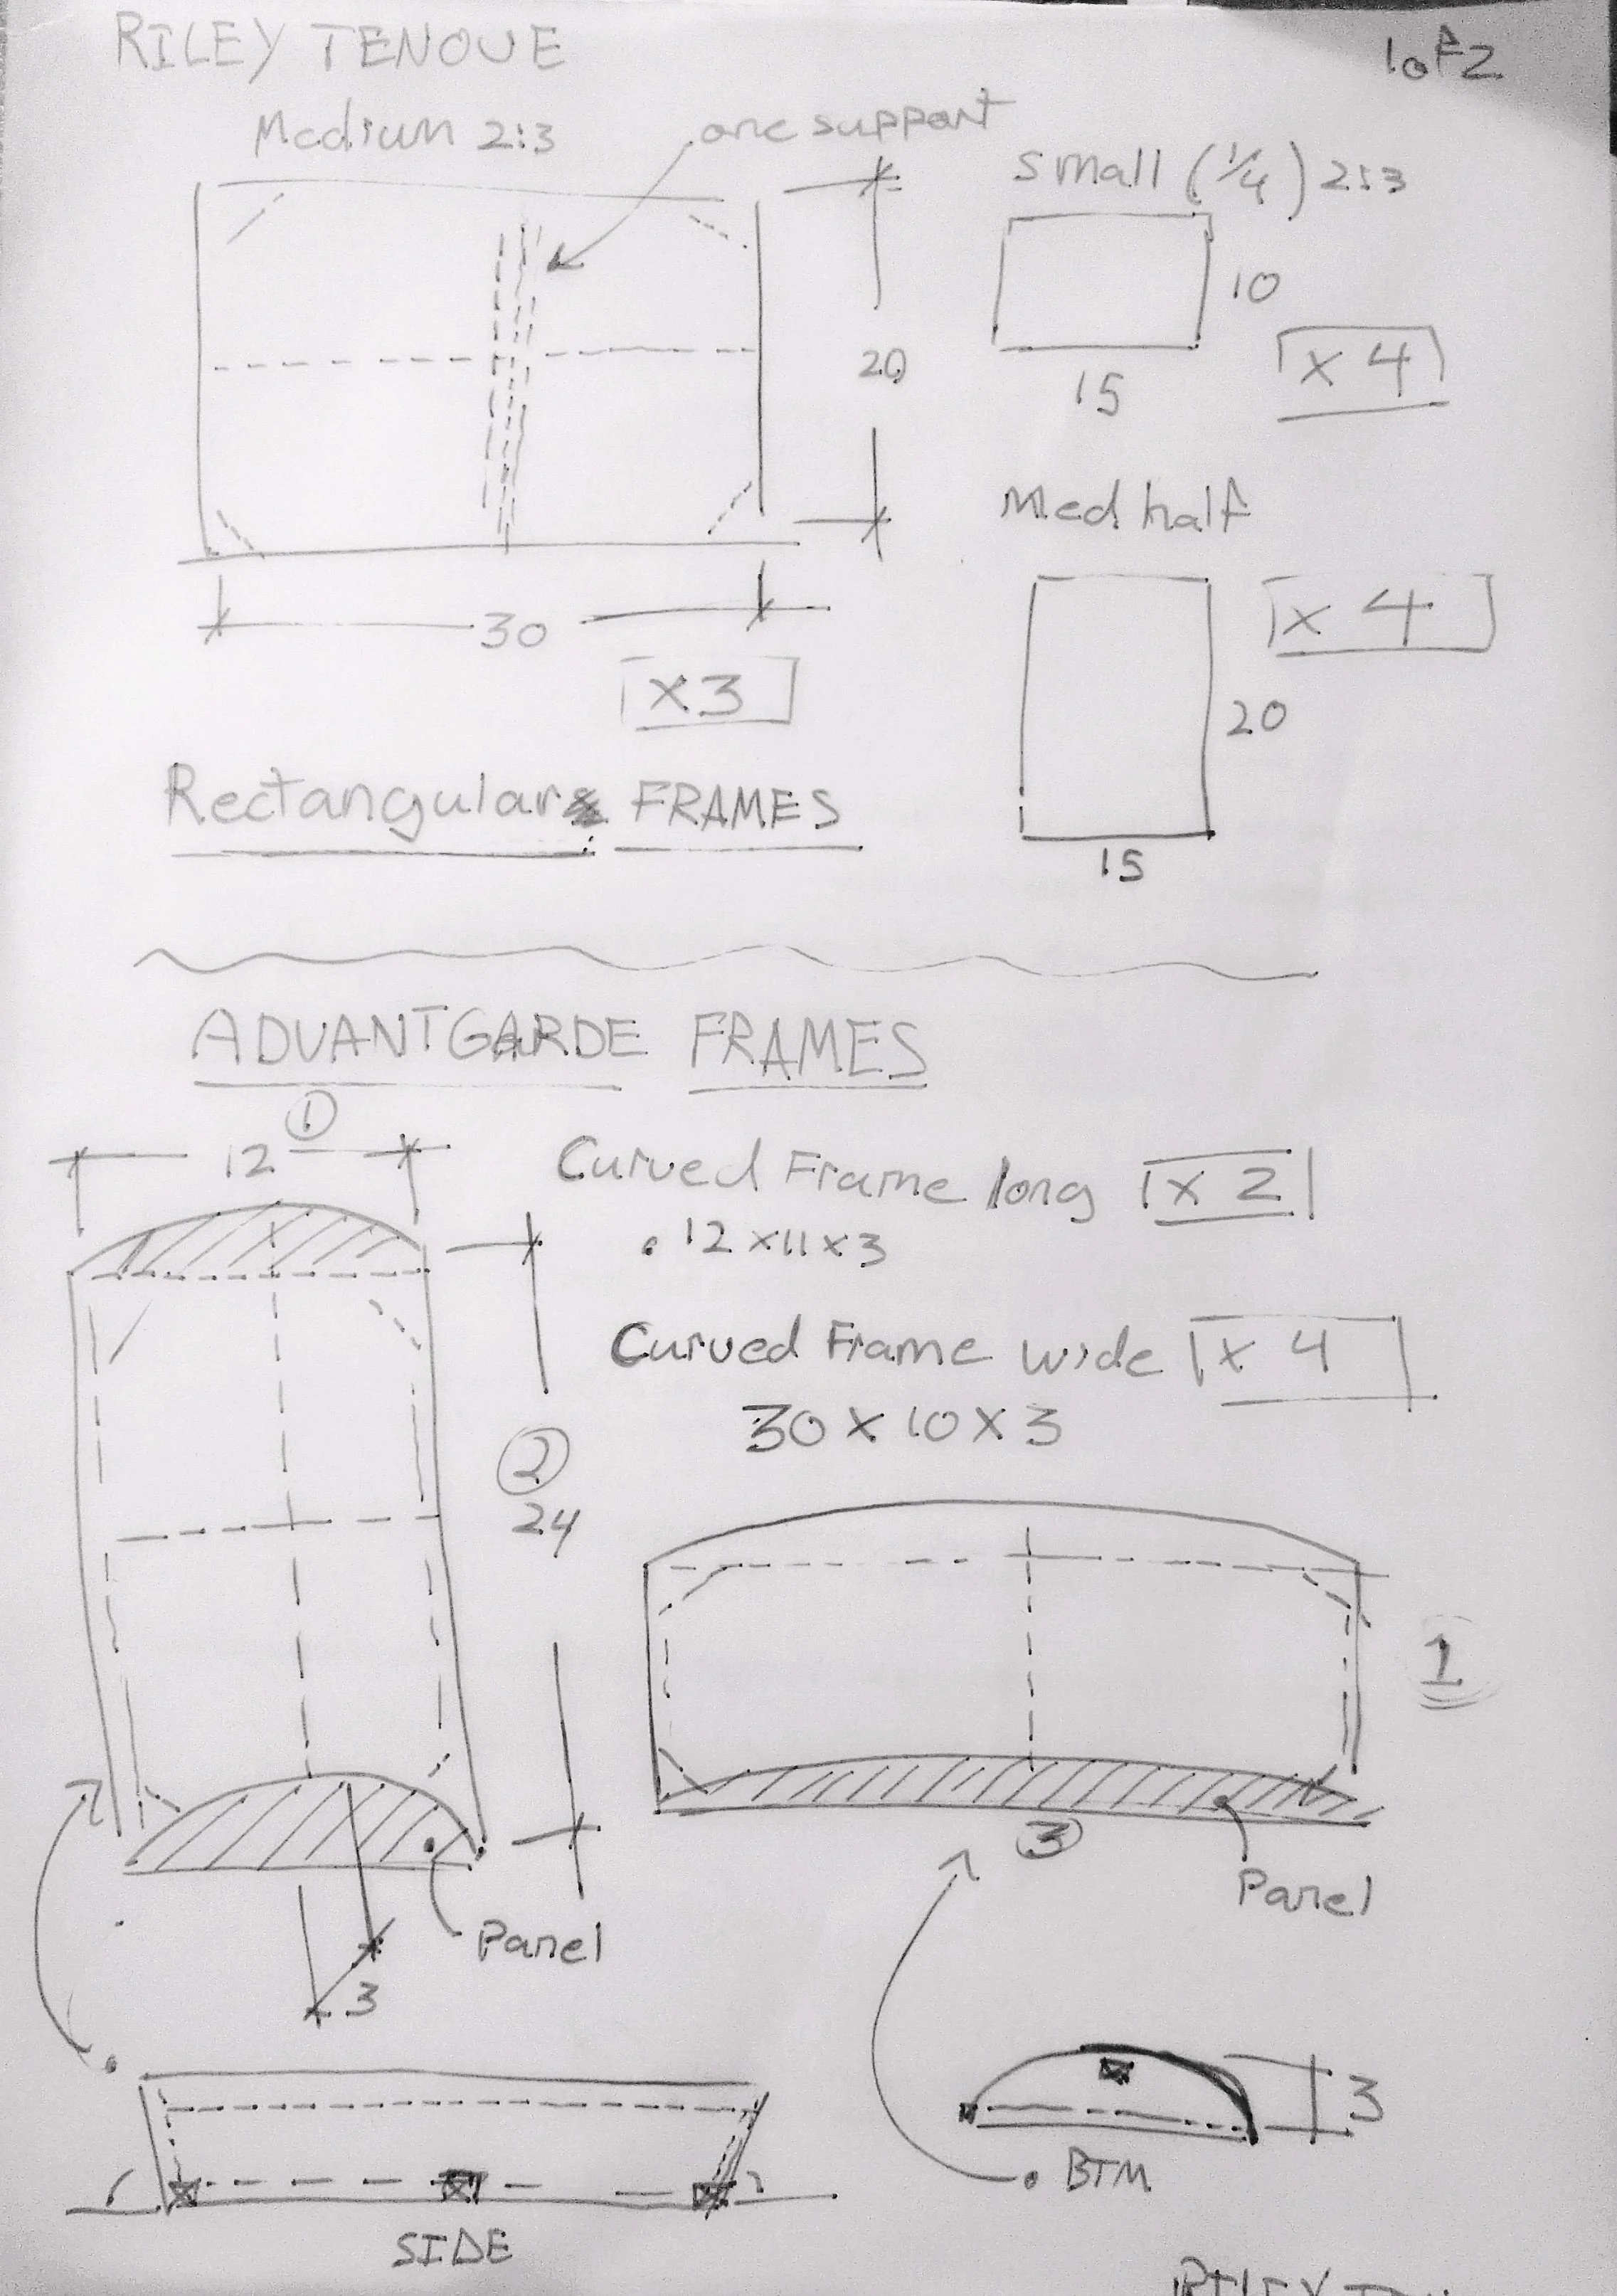 RILEY TENOUE
1 of 2
Medium 2:3
one support
small (1/4) 2:3
10
15
x 4
20
30
x 3
Med half
x 4
20
15
Rectangular FRAMES
ADVANTGARDE FRAMES
1
12
Curved Frame long x 2
• 12 x 11 x 3
Curved Frame wide x 4
30 x 10 x 3
2
24
1
3
Panel
Panel
3
3
BTM
SIDE
RILEY